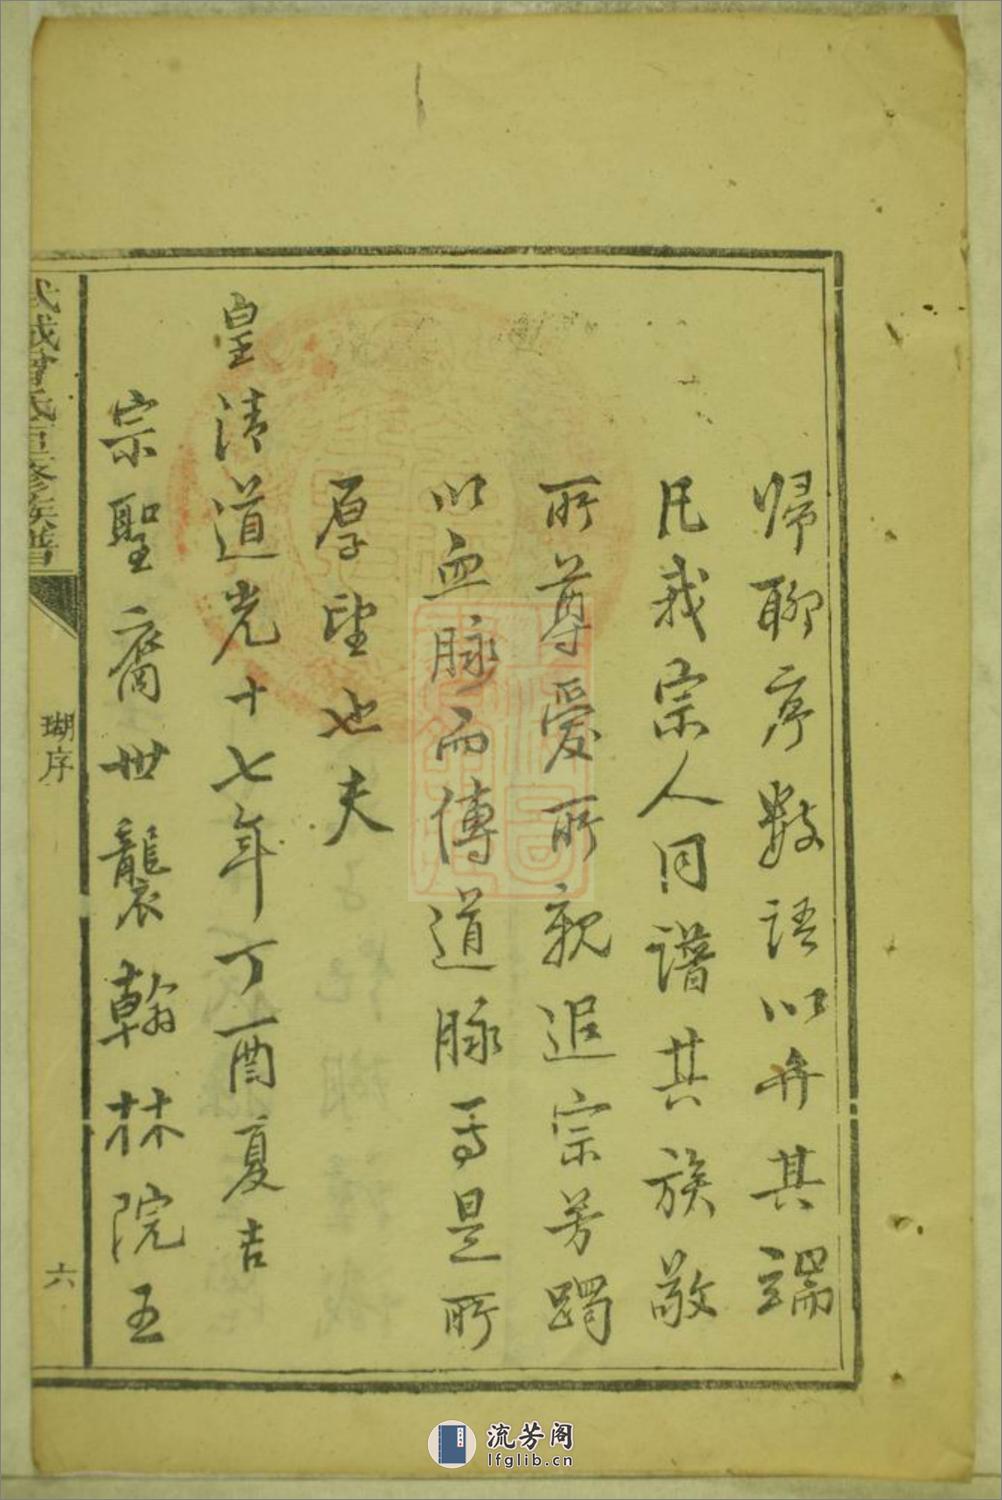 歸聊序數語以弁其端
凡我宗人同譜共族敬
所尊愛所親追宗芳躅
以血脉而傳道脉焉是所
厚望也夫
皇清道光十七年丁酉夏吉
宗聖裔世襲翰林院五
武城曾氏重修族譜
瑚序
六
流芳阁
lfglib.cn